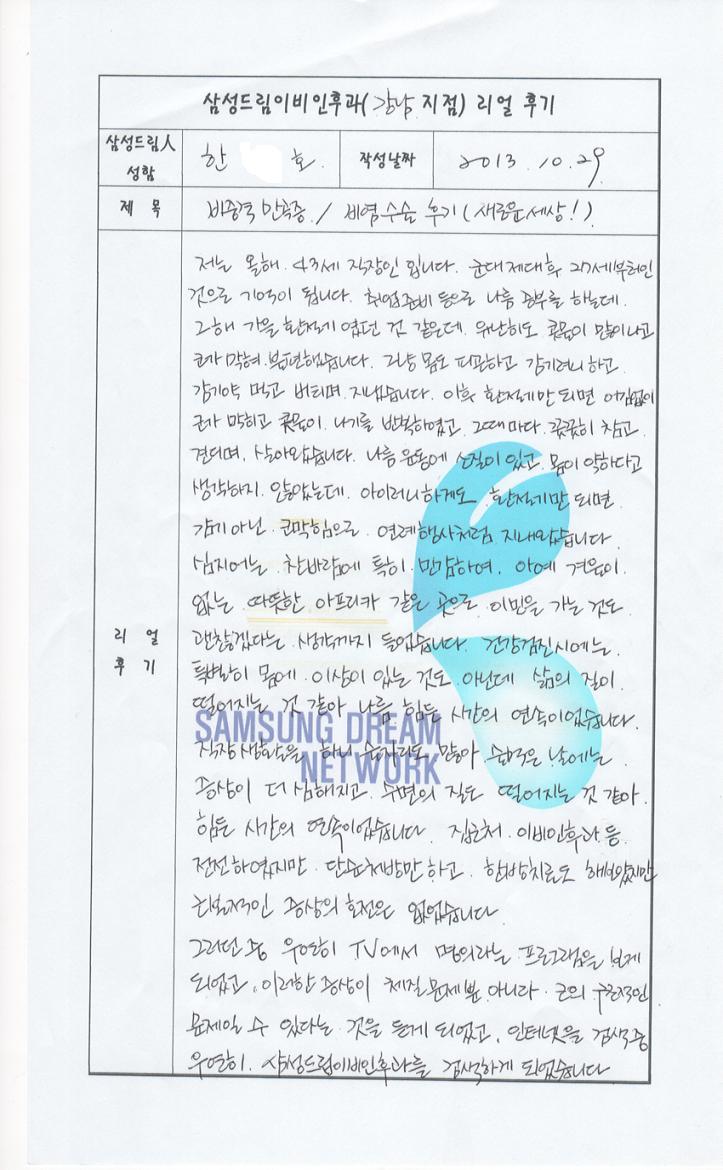 삼성드림이비인후과(강남 지점) 리얼 후기
삼성드림人 성함
한 호
작성날짜
2013. 10. 29.
제 목
비중격 만곡증 / 비염수술 후기 (새로운세상!)
리 얼
후 기
저는 올해 43세 직장인 입니다. 군대제대후 27세부터인
것으로 기억이 됩니다. 취업준비 등으로 나름 공부를 하는데.
그해 가을 환절기 였던 것 같은데. 유난히도 콧물이 많이나고
코가 막혀. 불편했습니다. 그냥 몸도 피곤하고 감기려니 하고.
감기약 먹고 버티며. 지냈습니다. 이후 환절기만 되면 어김없이
코가 막히고 콧물이. 나기를 반복하였고. 그때마다. 꿋꿋히 참고.
견디며, 살아왔습니다. 나름 운동에 소질이 있고. 몸이 약하다고
생각하지. 않았는데. 아이러니하게도 환절기만 되면.
감기 아닌 코막힘으로 연례행사처럼 지내왔습니다.
심지어는 찬바람에 특히 민감하여, 아예 겨울이.
없는 따뜻한 아프리카 같은 곳으로 이민을 가는 것도
괜찮겠다는 생각까지 들었습니다. 건강검진시에는.
특별히 몸에. 이상이 있는 것도 아닌데 삶의 질이
떨어지는 것 같아 나름 힘든 시간의 연속이었습니다.
SAMSUNG DREAM
NETWORK
직장 생활을 하니 술자리도 많아 술먹은 날에는
증상이 더 심해지고. 수면의 질도 떨어지는 것 같아.
힘든 시간의 연속이었습니다. 집근처. 이비인후과 등.
전전하였지만. 단순처방만 하고. 한방치료도 해보았지만
근본적인 증상의 호전은 없었습니다
그러던 중 우연히 TV에서 명의라는 프로그램을 보게
되었고, 이러한 증상이 체질문제뿐 아니라. 코의 구조적인
문제일 수 있다는 것을 듣게 되었고, 인터넷을 검색중
우연히. 삼성드림이비인후과를 검색하게 되었습니다